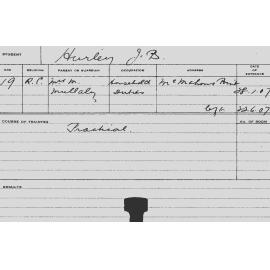 STUDENT Hurley J. B.
AGE RELIGION PARENT OR GUARDIAN OCCUPATION ADDRESS DATE OF ENTRANCE
19 R.C. Mrs M. Household McMahons Point
Mullaly Duties 28.1.07
22.6.07
COURSE OF TRAINING Practical. No. OF ROOM
RESULTS